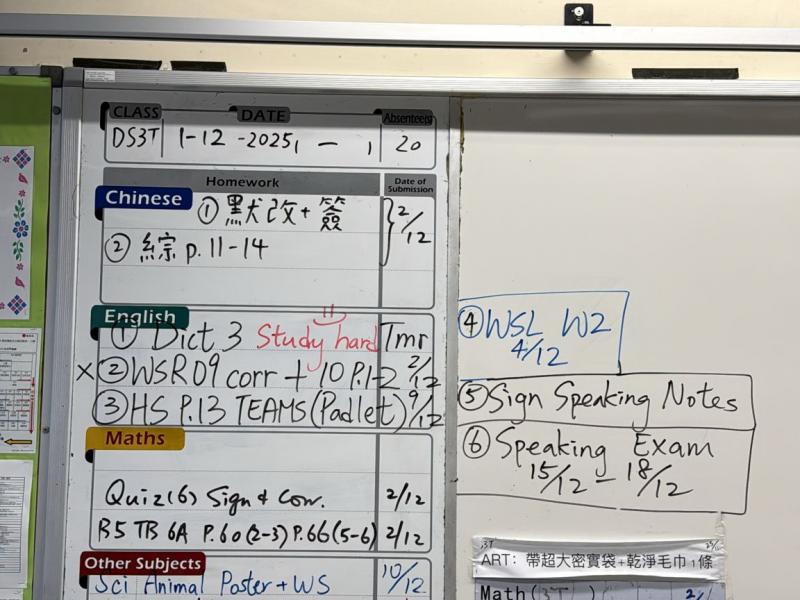 CLASS DATE Absentee(s)
DS3T 1-12-2025, — , 20
Homework Date of Submission
Chinese
① 默改+簽 2/12
② 綜 p.11-14
English
① Dict 3 Study hard Tmr
×② WSR09 corr + 10 P.1-2 2/12
③ HS P.13 TEAMS (Padlet) 9/12
Maths
Quiz(6) Sign & Corr. 2/12
B5 TB 6A P.60(2-3) P.66(5-6) 2/12
Other Subjects
Sci Animal Poster + WS 10/12
④ WSL W2
4/12
⑤ Sign Speaking Notes
⑥ Speaking Exam
15/12 - 18/12
3T
ART: 帶超大密實袋+乾淨毛巾1條
Math(3T )